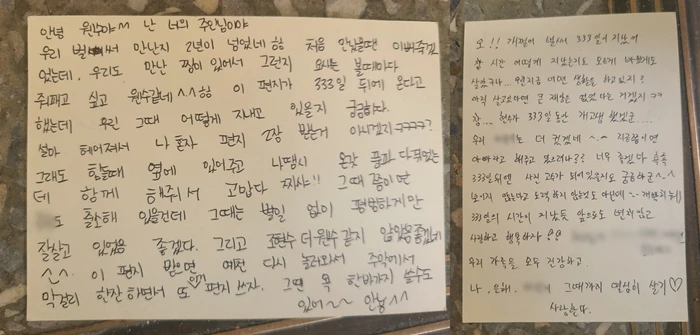 안녕 원수야~~ 난 너의 주인님이야
우리 벌써 만난지 2년이 넘었네 힝 처음 만났을땐 이뻐죽겠
었는데, 우리도 만난 짬이 있어서 그런지 요새는 볼때마다
쥐패고 싶고 원수같네^^힝 이 편지가 333일 뒤에 온다고
했는데 우린 그때 어떻게 지내고 있을지 궁금하다.
설마 헤어져서 나 혼자 편지 2장 받는거 아니겠지ㅋㅋㅋㅋ?
그래도 힘들때 옆에 있어주고 나땜시 온갖 풍파 다겪었는
데 함께 해주어서 고맙다 짜샤!! 그때 쯤이면
도 출소해 있을건데 그때는 별일 없이 평범하게만
잘살고 있었음 좋겠다. 그리고 더 원수같지 않았음 좋겠네
^^. 이 편지 받으면 예전 다시 놀러와서 주막에서
막걸리 한잔 하면서 또 편지 쓰자. 그땐 욕 한바가지 쓸수도
있어~~ 안녕^^
오!! 개쩔어 벌써 333일이 지났어
시간 어떻게 지났는지도 모르게 바쁘게도
살았구나.. 어떤 생활을 하고있지?
아직 살고있다면 큰 재앙은 없었다는 거겠지ㅋㅋ
333일동안
우리 는 더 컸겠네 ^-^ 지금쯤이면
아빠라고 해주고 있으려나?? 너무 좋겠다 흑흑
333일뒤엔 사진 궁금하군^^
333일의 시간이 지났듯 앞으로도 변치않고
사랑하고 행복하자
우리 가족들 모두 건강하고
나, 그때까지 열심히 살기♡
사랑한다.